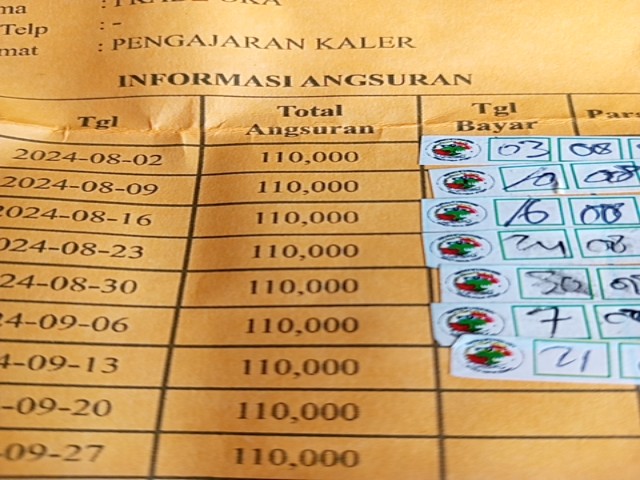 ma :
Telp : -
mat : PENGAJARAN KALER
INFORMASI ANGSURAN
Tgl Total Angsuran Tgl Bayar Par
2024-08-02 110,000 03 08
2024-08-09 110,000 10 08
2024-08-16 110,000 16 08
024-08-23 110,000 24 08
24-08-30 110,000 30
4-09-06 110,000 7
4-09-13 110,000 21
-09-20 110,000
-09-27 110,000